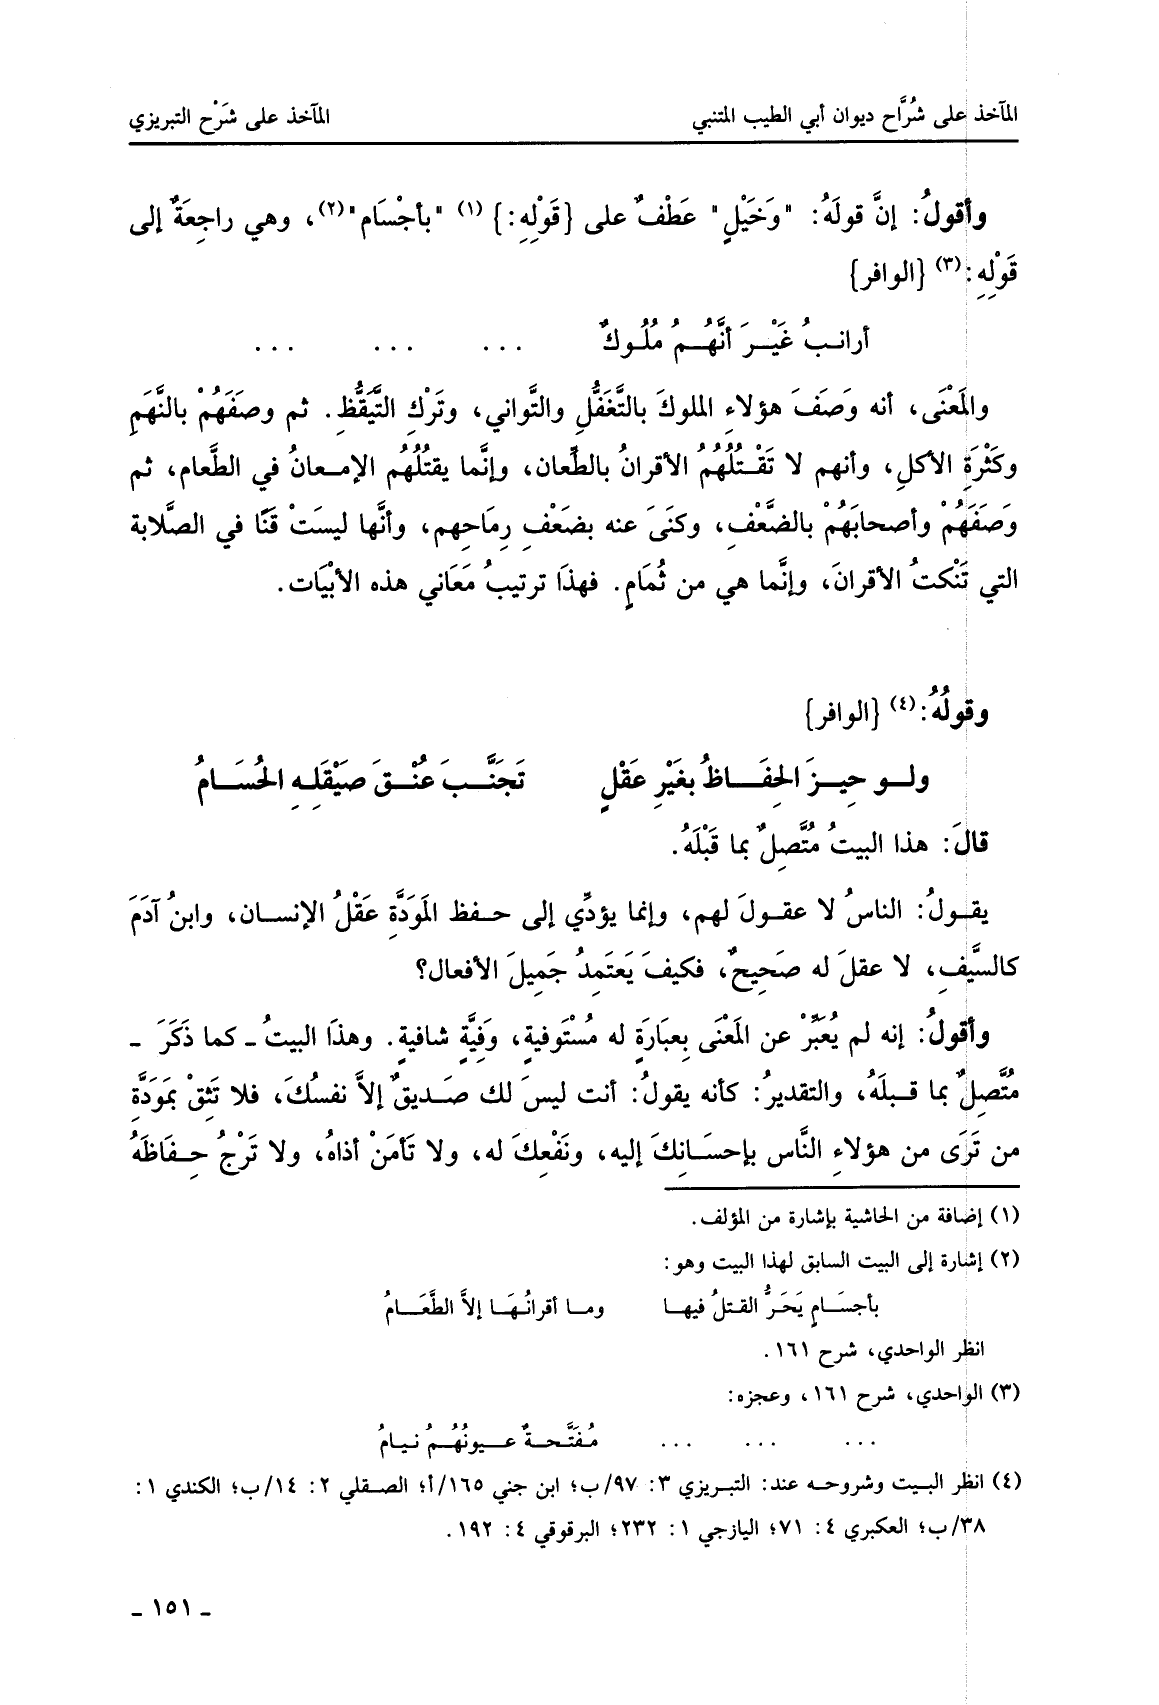 المآخذ على شُرَّاح ديوان أبي الطيب المتنبي المآخذ على شَرْح التبريزي
وأقولُ: إنَّ قولَهُ: "وَخَيْلٍ" عَطْفٌ على {قَوْلِهِ:} (١) "بأجْسَام"(٢)، وهي راجِعَةٌ إلى
قَوْلِهِ:(٣) {الوافر}
أرانـبُ غَيْـرَ أنَّهُـمُ مُلُـوكٌ ... ... ...
والمَعْنَى، أنه وَصَفَ هؤلاءِ الملوكَ بالتَّغَفُّلِ والتَّواني، وتَرْكِ التَّيَقُّظِ. ثم وصَفَهُمْ بالنَّهَمِ
وكَثْرَةِ الأكلِ، وأنهم لا تَقْـتُلُهُمُ الأقرانُ بالطِّعان، وإنَّما يقتُلُهُم الإمـعانُ في الطَّعام، ثم
وَصَفَهُمْ وأصحابَهُمْ بالضَّعْفِ، وكَنَى عنه بضَعْفِ رِمَاحِهم، وأنَّها ليسَتْ قَنًا في الصَّلابة
التي تَنْكتُ الأقرانَ، وإنَّما هي من ثُمَامٍ. فهذَا ترتيبُ مَعَاني هذه الأبْيَات.
وقولُهُ:(٤) {الوافر}
ولـو حِيـزَ الحِفَـاظُ بغَيْرِ عَقْلٍ تَجَنَّـبَ عُنْـقَ صَيْقَلِـهِ الحُسَـامُ
قالَ: هذا البيتُ مُتَّصِلٌ بما قَبْلَهُ.
يقـولُ: الناسُ لا عقـولَ لهم، وإنما يؤدِّي إلى حـفظ المَوَدَّةِ عَقْلُ الإنسـان، وابنُ آدَمَ
كالسَّيْفِ، لا عقلَ له صَحِيحٌ، فكيفَ يَعتَمِدُ جَمِيلَ الأفعال؟
وأقولُ: إنه لم يُعَبِّرْ عن المَعْنَى بِعبَارَةٍ له مُسْتَوفيةٍ، وَفِيَّةٍ شافيةٍ. وهذَا البيتُ ـ كما ذَكَرَ ـ
مُتَّصِلٌ بما قـبلَهُ، والتقديرُ: كأنه يقولُ: أنت ليسَ لك صَـديقٌ إلاَّ نفسُكَ، فلا تَثِقْ بمَوَدَّةِ
من تَرَى من هؤلاءِ النَّاس بإحسَـانِكَ إليه، ونَفْعِكَ له، ولا تَأمَنْ أذاهُ، ولا تَرْجُ حِـفَاظَهُ
(١) إضافة من الحاشية بإشارة من المؤلف.
(٢) إشارة إلى البيت السابق لهذا البيت وهو:
بأجسَـامٍ يَحَرُّ القـتلُ فيهـا ومـا أقرانُـهَـا إلاَّ الطَّعَـامُ
انظر الواحدي، شرح ١٦١.
(٣) الواحدي، شرح ١٦١، وعجزه:
... ... ... مُفَتَّحـةٌ عـيونُهُـمُ نيـامُ
(٤) انظر البـيت وشروحـه عند: التبـريزي ٣: ٩٧/ب؛ ابن جني ١٦٥/أ؛ الصـقلي ٢: ١٤/ب؛ الكندي ١:
٣٨/ب؛ العكبري ٤: ٧١؛ اليازجي ١: ٢٣٢؛ البرقوقي ٤: ١٩٢.
ـ ١٥١ ـ